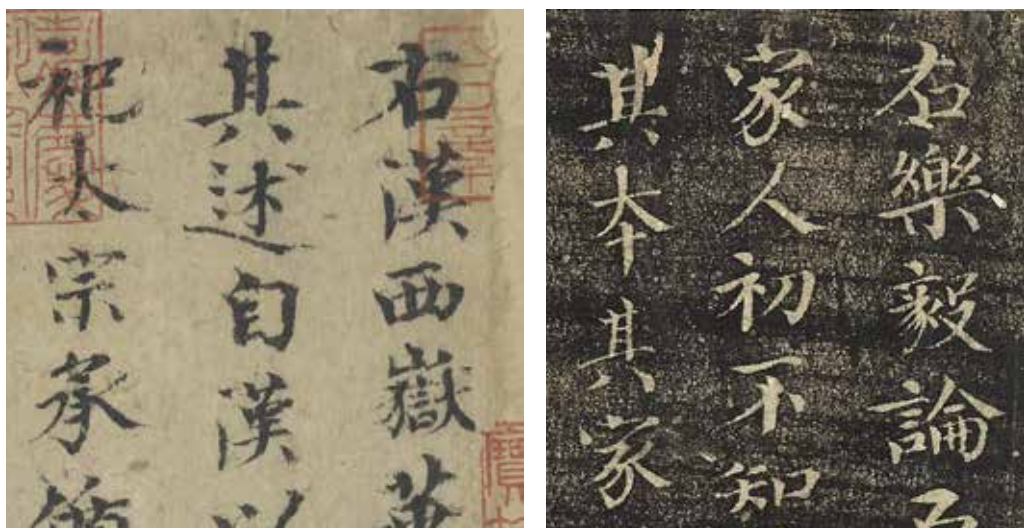 右漢西嶽華
其述自漢以
祀太宗承循
右樂毅論
家人初不知
其本其家